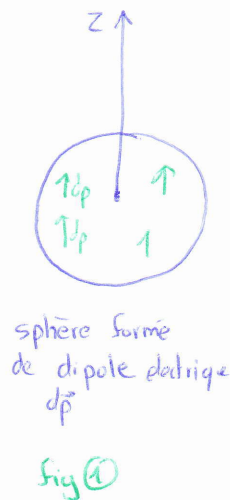 Z
dp
dp
sphère formé
de dipole électrique
dp
fig 1